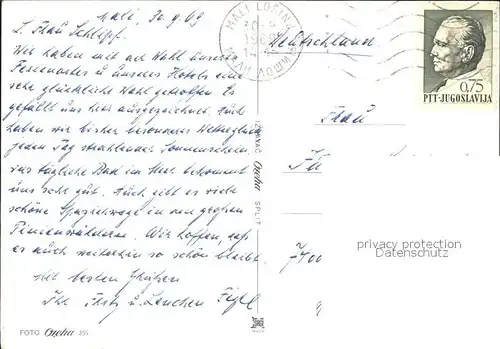 Mali, 30.9.69
L. Frau Schlipf.
Wir haben mit der Wahl unseres
Ferienortes u. unseres Hotels eine
sehr glückliche Wahl getroffen. Es
gefällt uns hier ausgezeichnet. Auch
haben wir bisher besonderes Wetterglück,
jeden Tag strahlender Sonnenschein,
das tägliche Bad im Meer bekommt
uns sehr gut. Auch gibt es viele
schöne Spazierwege in den großen
Pinienwäldern. Wir hoffen, daß
es auch weiterhin so schön bleibt.
Mit besten Grüßen
Ihr Fritz u. Lenchen
FOTO Oreha 355
IZDAVAČ Oreha SPLIT
MALI LOŠINJ
Deutschland
0,75
PTT-JUGOSLAVIJA
Frau
privacy protection
Datenschutz
7400